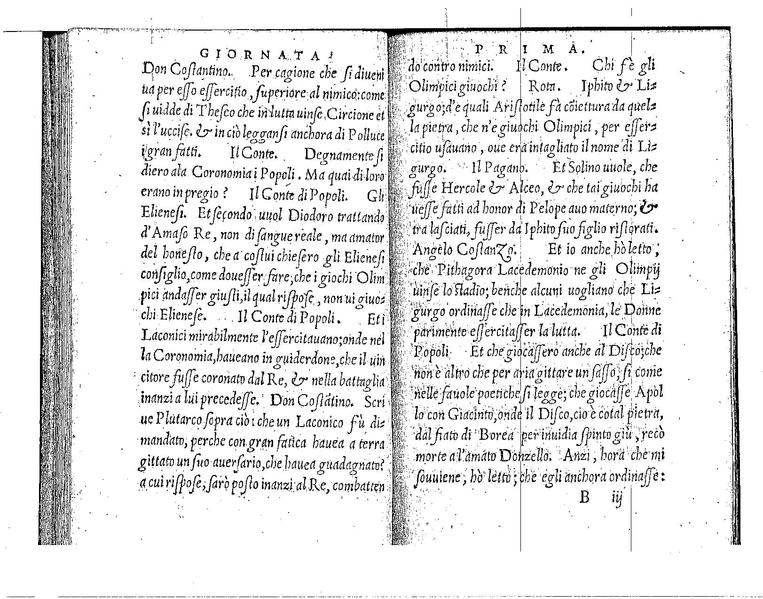 GIORNATA
Don Costantino. Per cagione che si diueni
ua per esso essercitio, superiore al nimico: come
si uidde di Theseo che in lutta uinse Circione et
sì l'uccise. & in ciò leggansi anchora di Polluce
i gran fatti. Il Conte. Degnamente si
diero ala Coronomia i Popoli. Ma quai di loro
erano in pregio? Il Conte di Popoli. Gli
Elienesi. Et secondo uuol Diodoro trattando
d'Amaso Re, non di sangue reale, ma amator
del honesto, che a costui chiesero gli Elienesi
consiglio, come douesser fare, che i giochi Olim
pici andasser giusti, il qual rispose, non ui giuo-
chi Elienese. Il Conte di Popoli. Et i
Laconici mirabilmente l'essercitauano; onde nel
la Coronomia, haueano in guiderdone, che il uin
citore fusse coronato dal Re, & nella battaglia
inanzi a lui precedesse. Don Costãtino. Scri
ue Plutarco sopra ciò: che un Laconico fù di-
mandato, perche con gran fatica hauea a terra
gittato un suo auersario, che hauea guadagnato?
a cui rispose; sarò posto inanzi al Re, combatten
PRIMA.
do contro nimici. Il Conte. Chi fè gli
Olimpici giuochi? Rota. Iphito & Li-
gurgo; d'e quali Aristotile fà cõiettura da quel-
la pietra, che n'e giuochi Olimpici, per esser-
citio usauano, oue era intagliato il nome di Li-
gurgo. Il Pagano. Et Solino uuole, che
fusse Hercole & Alceo, & che tai giuochi ha
uesse fatti ad honor di Pelope auo materno; &
tra lasciati, fusser da Iphito suo figlio ristorati.
Angelo Costanzo. Et io anche hò letto,
che Pithagora Lacedemonio ne gli Olimpij
uinse lo stadio; benche alcuni uogliano che Li-
gurgo ordinasse che in Lacedemonia, le Donne
parimente essercitasser la lutta. Il Conte di
Popoli Et che giocassero anche al Disco; che
non è altro che per aria gittare un sasso; si come
nelle fauole poetiche si legge; che giocasse Apol
lo con Giacinto, onde il Disco, cio è cotal pietra,
dal fiato di Borea per inuidia spinto giù, recò
morte a l'amato Donzello. Anzi, hora che mi
souuiene, hò letto; che egli anchora ordinasse:
B iij